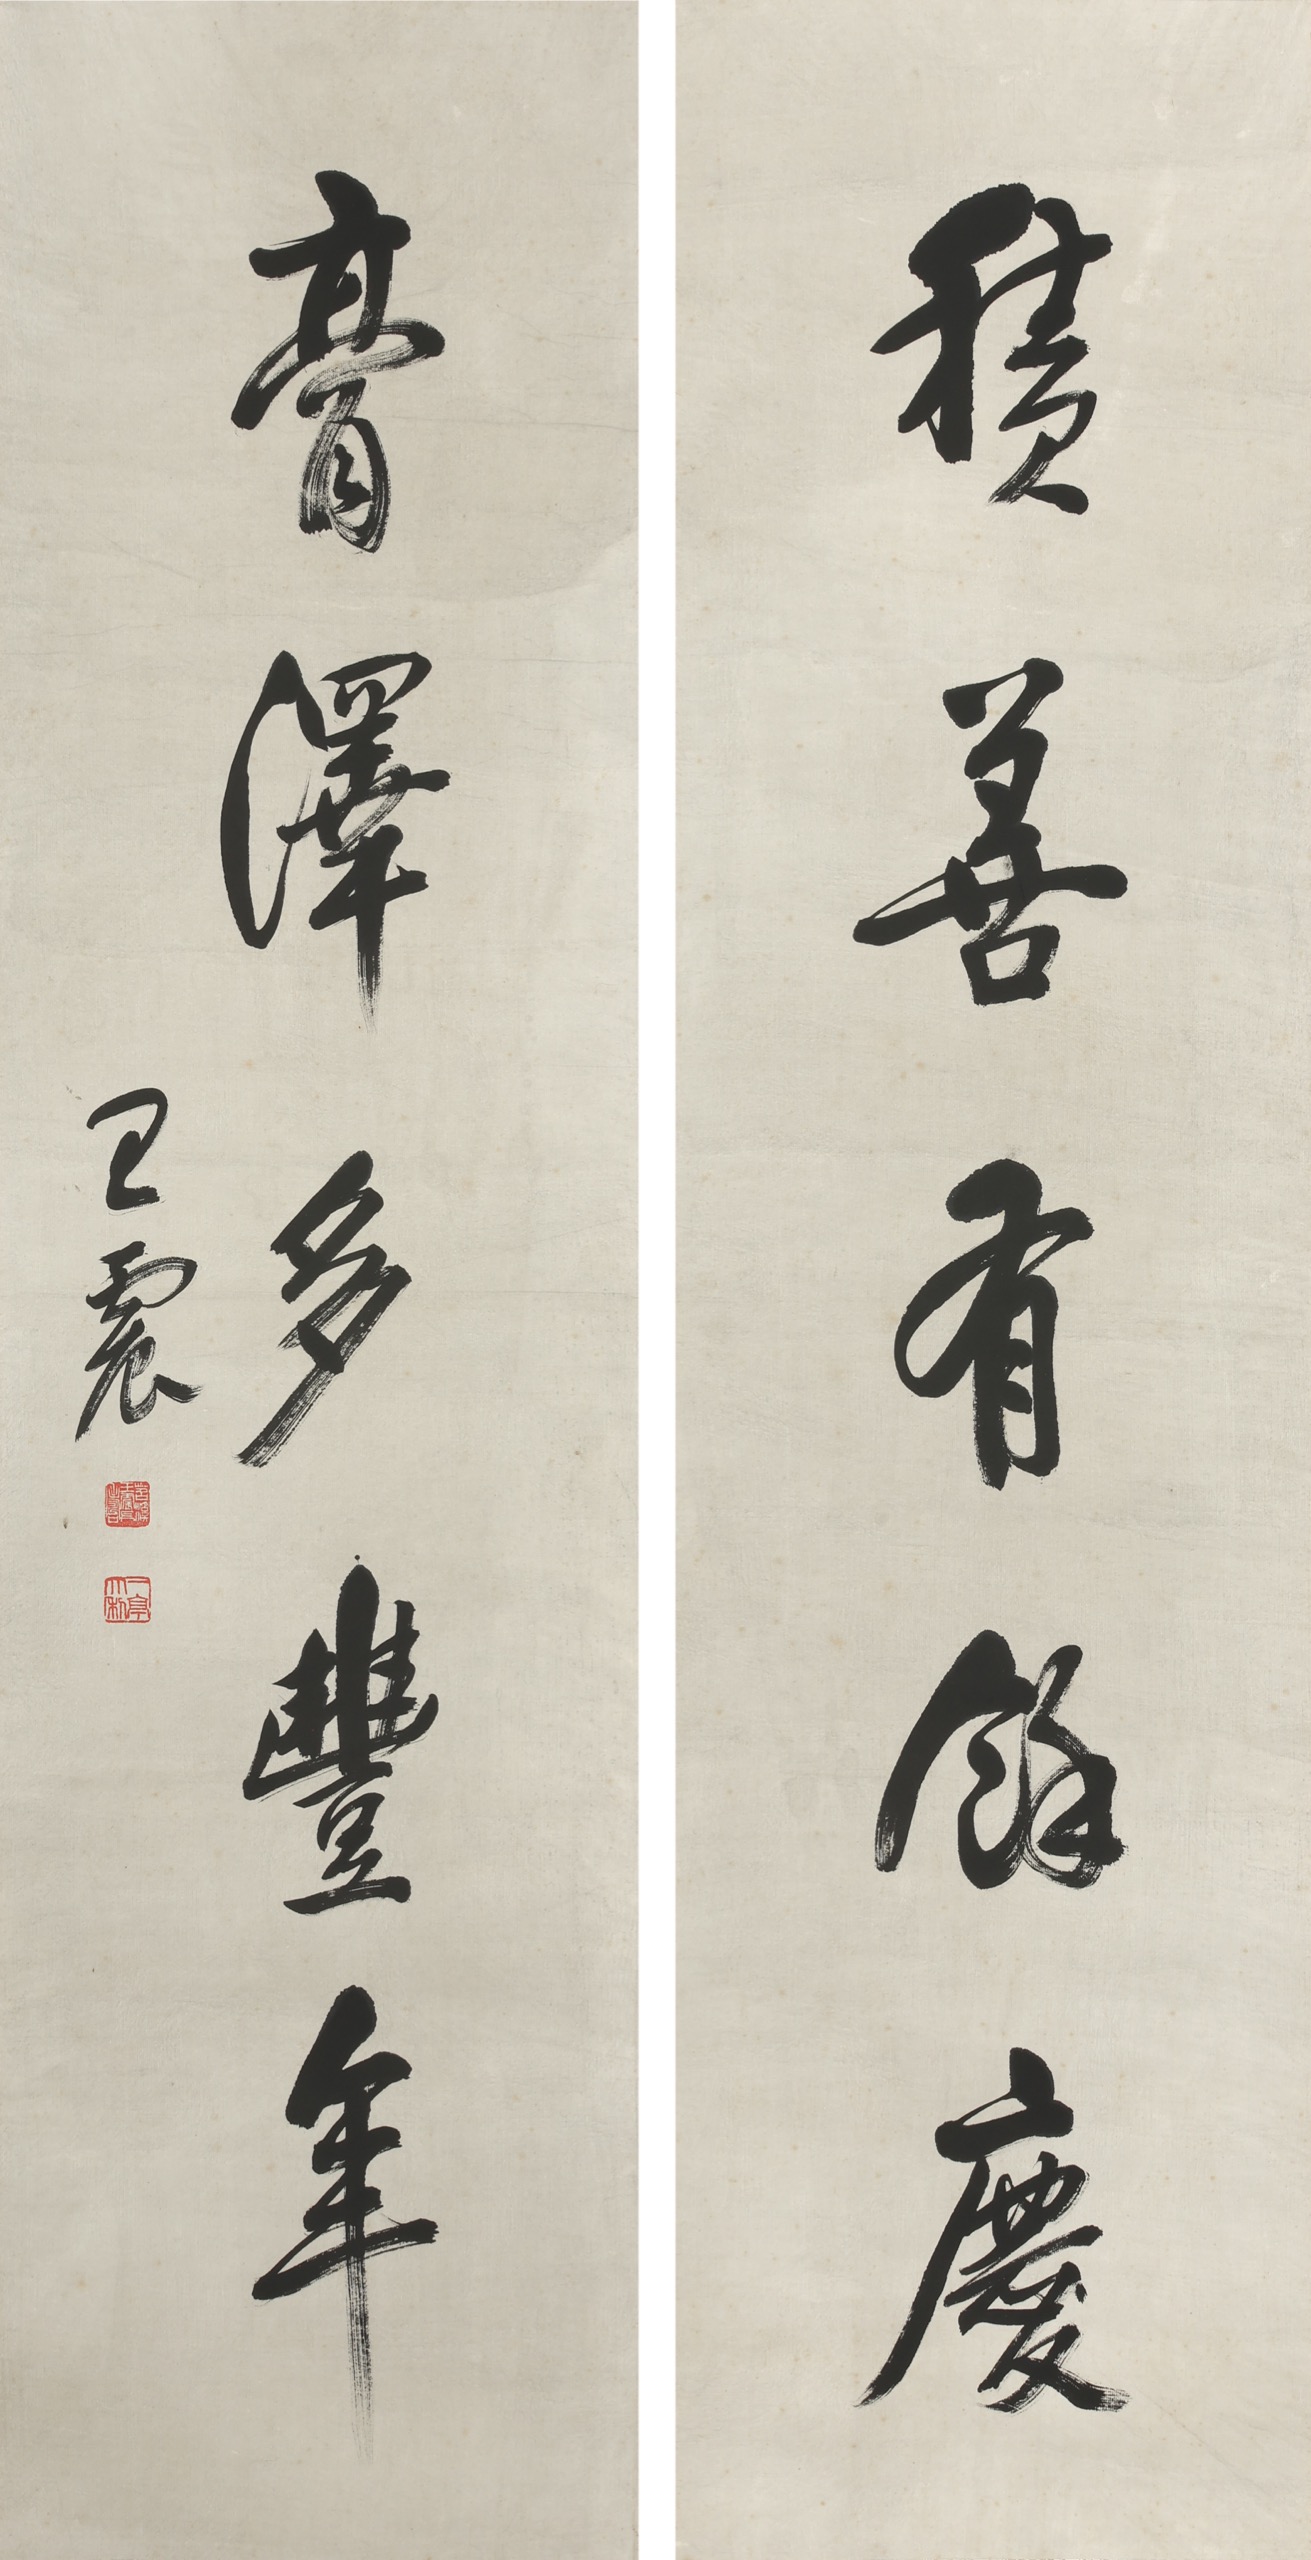 積善有餘慶
膏澤多豐年
王震
一亭大利